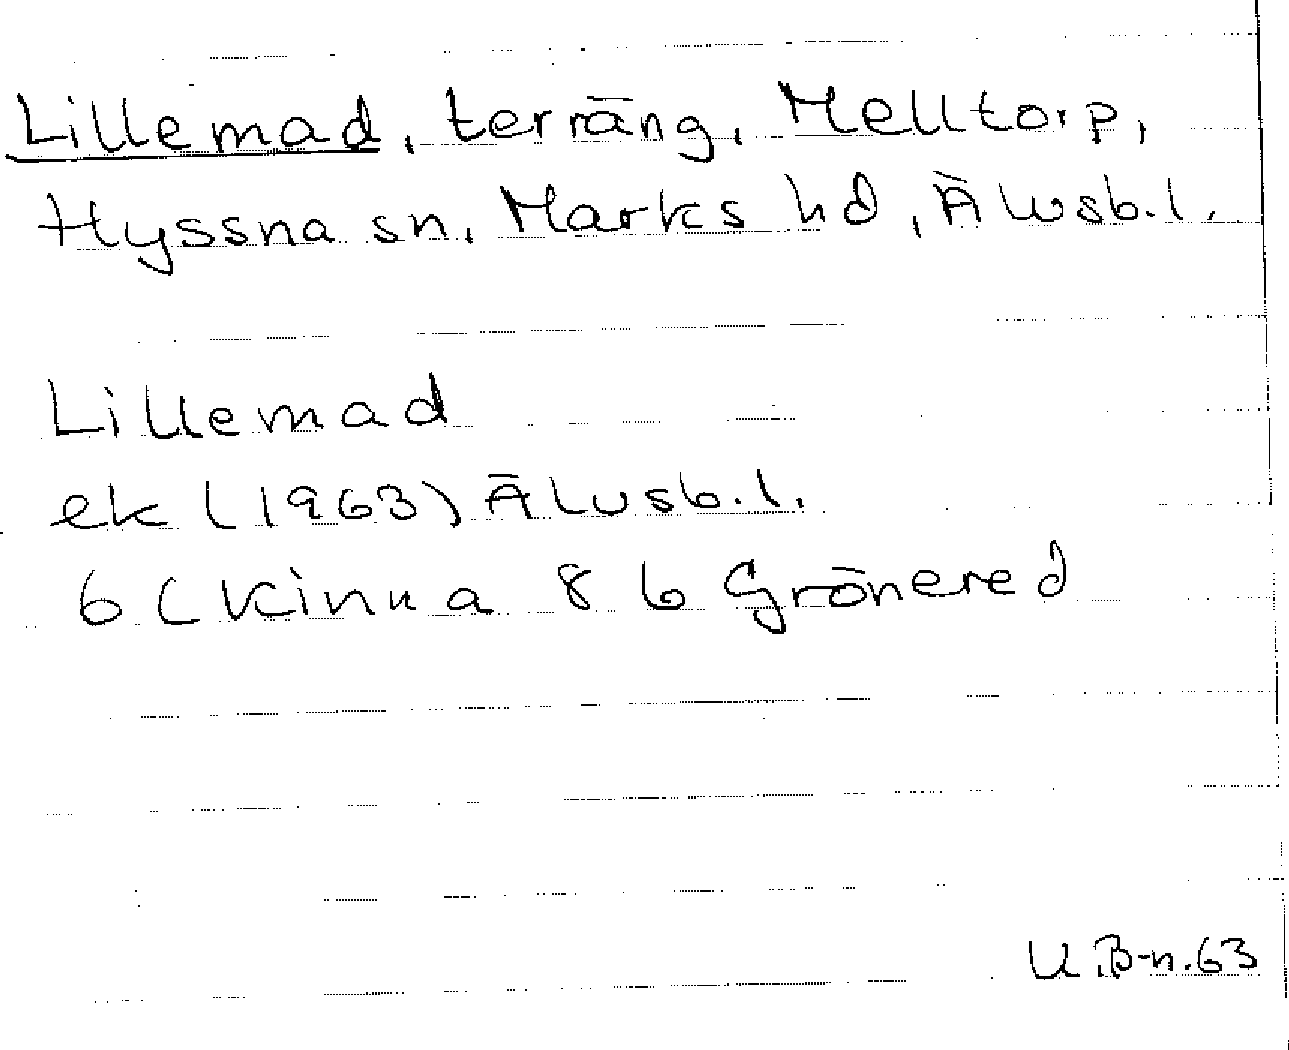 Lillemad, terräng, Melltorp,
Hyssna sn, Marks hd, Älvsb.l.
Lillemad
ek (1963) Älvsb.l.
6C Kinna 8 b Grönered
U.B-n.63